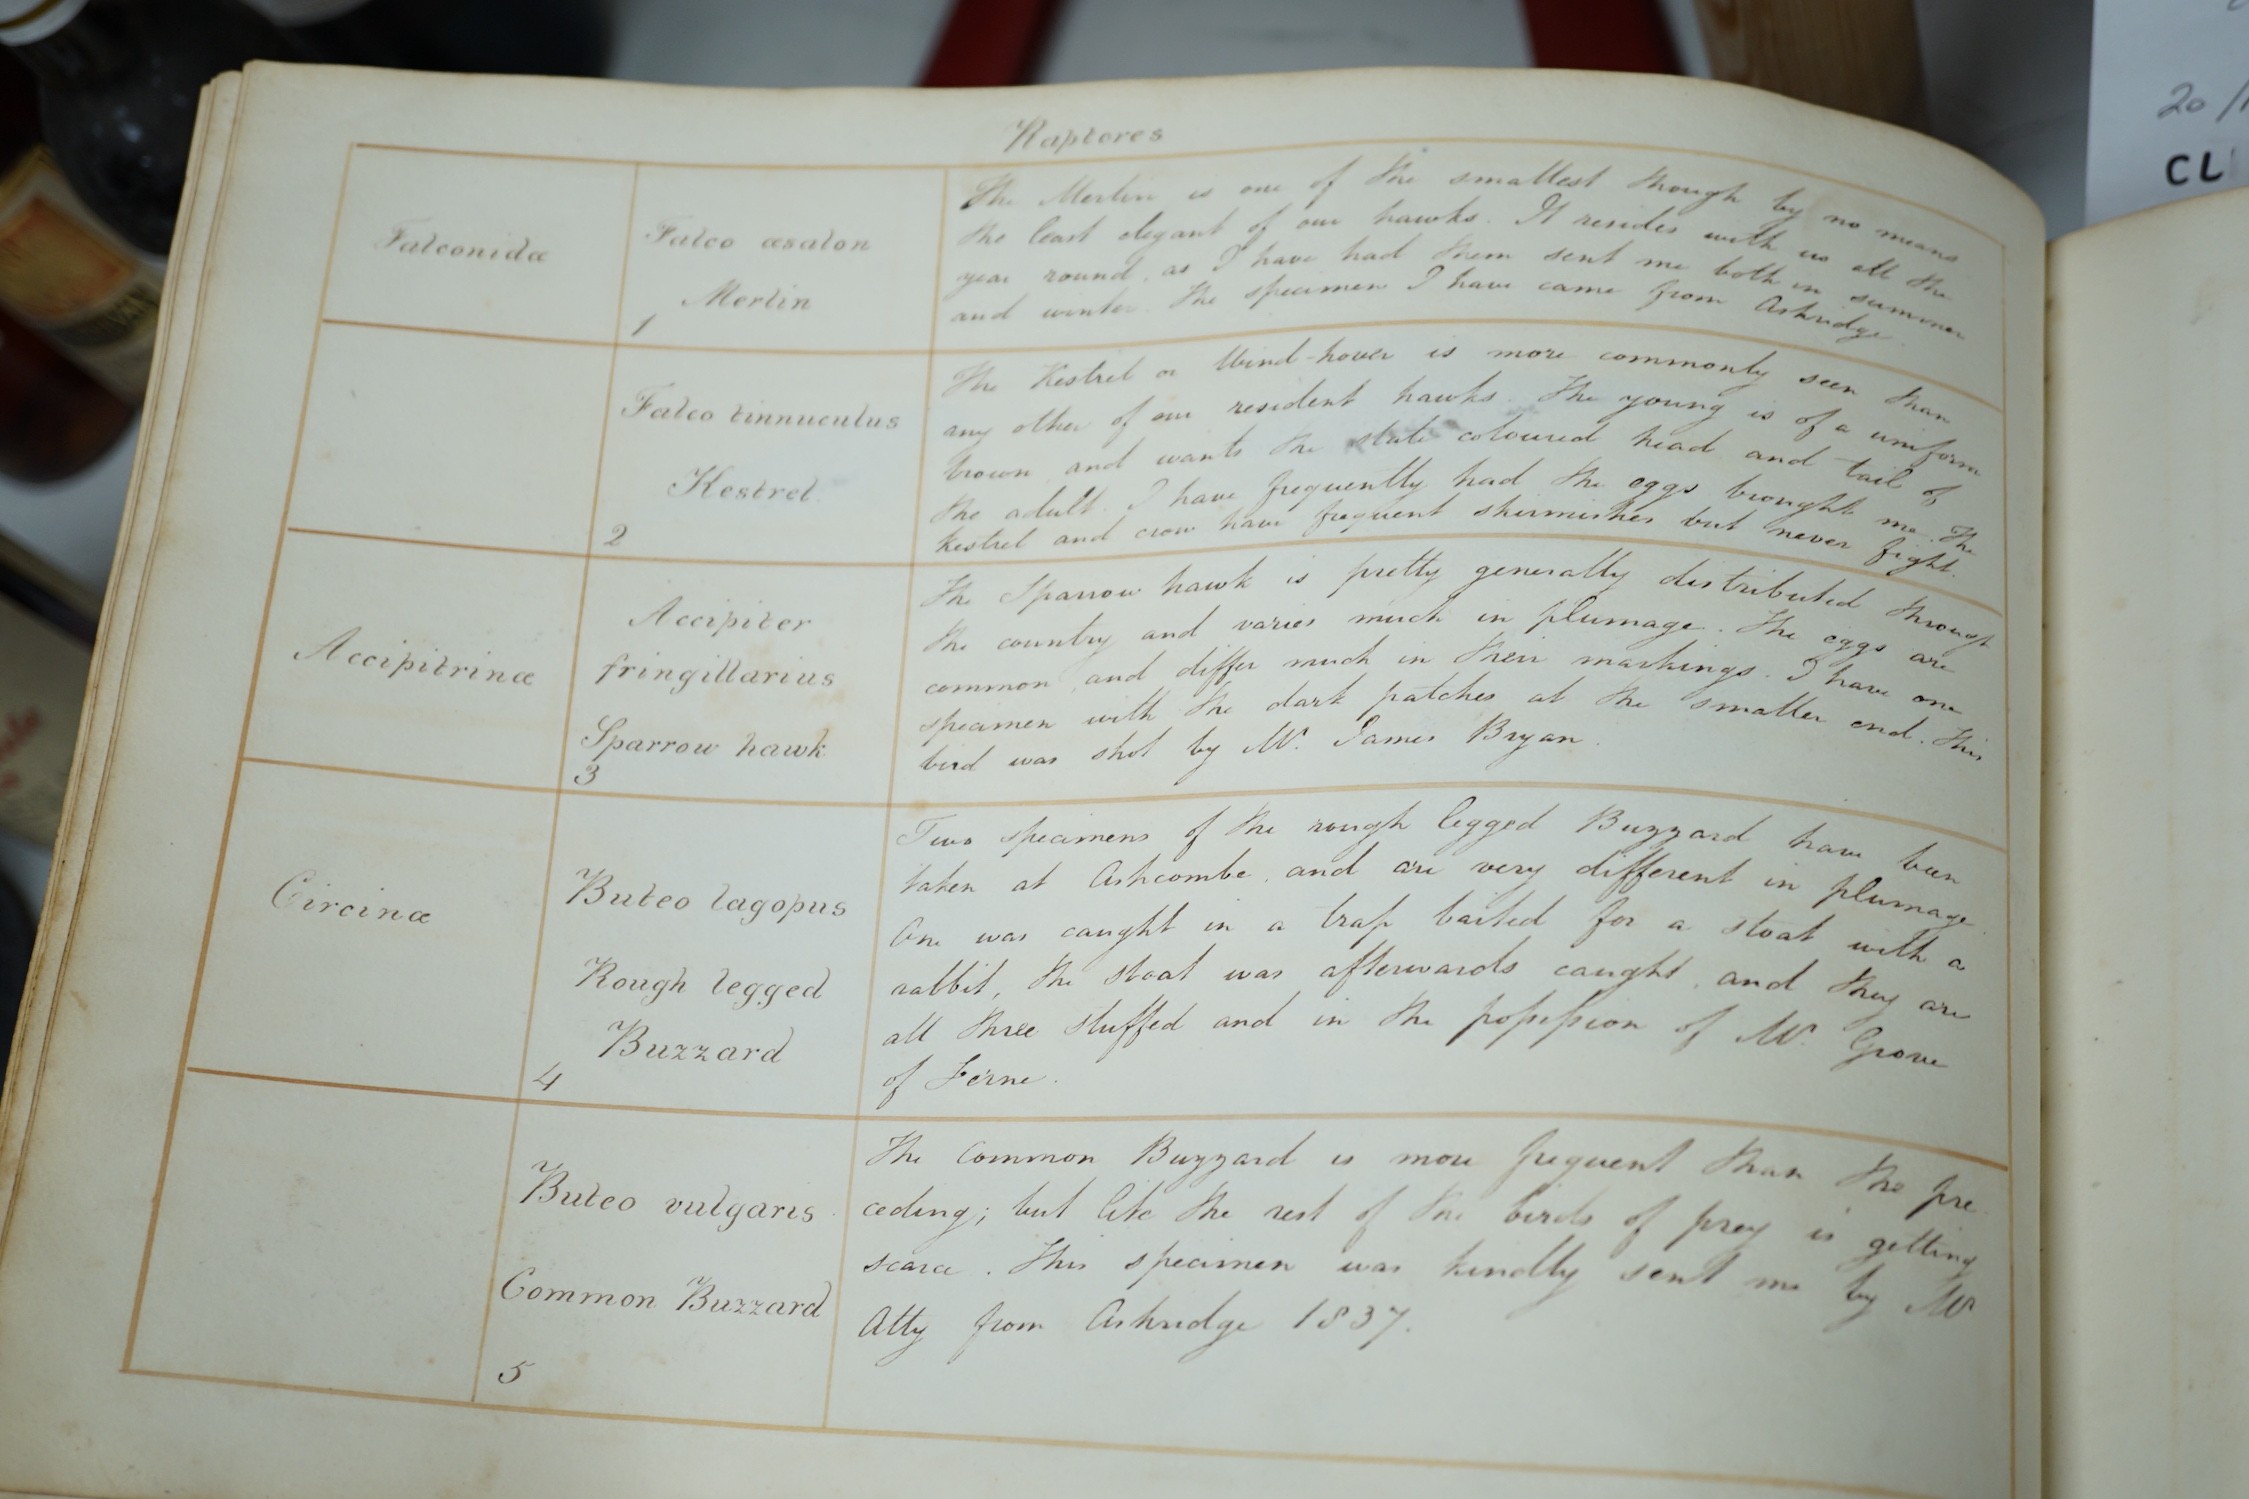 Raptores
Falconidæ
Falco æsalon
Merlin
1
The Merlin is one of the smallest though by no means
the least elegant of our hawks. It resides with us all the
year round, as I have had them sent me both in summer
and winter. The specimen I have came from Ashridge.
Falco tinnuculus
Kestrel
2
The Kestrel or Wind-hover is more commonly seen than
any other of our resident hawks. The young is of a uniform
brown and wants the slate coloured head and tail of
the adult. I have frequently had the eggs brought me. The
Kestrel and crow have frequent skirmishes but never fight.
Accipitrinæ
Accipiter
fringillarius
Sparrow hawk
3
The Sparrow hawk is pretty generally distributed through
the country and varies much in plumage. The eggs are
common and differ much in their markings. I have one
specimen with the dark patches at the smaller end. This
bird was shot by Mr. James Bryan.
Circinæ
Buteo lagopus
Rough legged
Buzzard
4
Two specimens of the rough legged Buzzard have been
taken at Ashcombe, and are very different in plumage
One was caught in a trap baited for a stoat with a
rabbit, the stoat was afterwards caught, and they are
all three stuffed and in the possession of Mr. Grove
of Ferne.
Buteo vulgaris
Common Buzzard
5
The Common Buzzard is more frequent than the pre
ceding; but like the rest of the birds of prey is getting
scarce. This specimen was kindly sent me by Mr
Atty from Ashridge 1837.
20/
CL